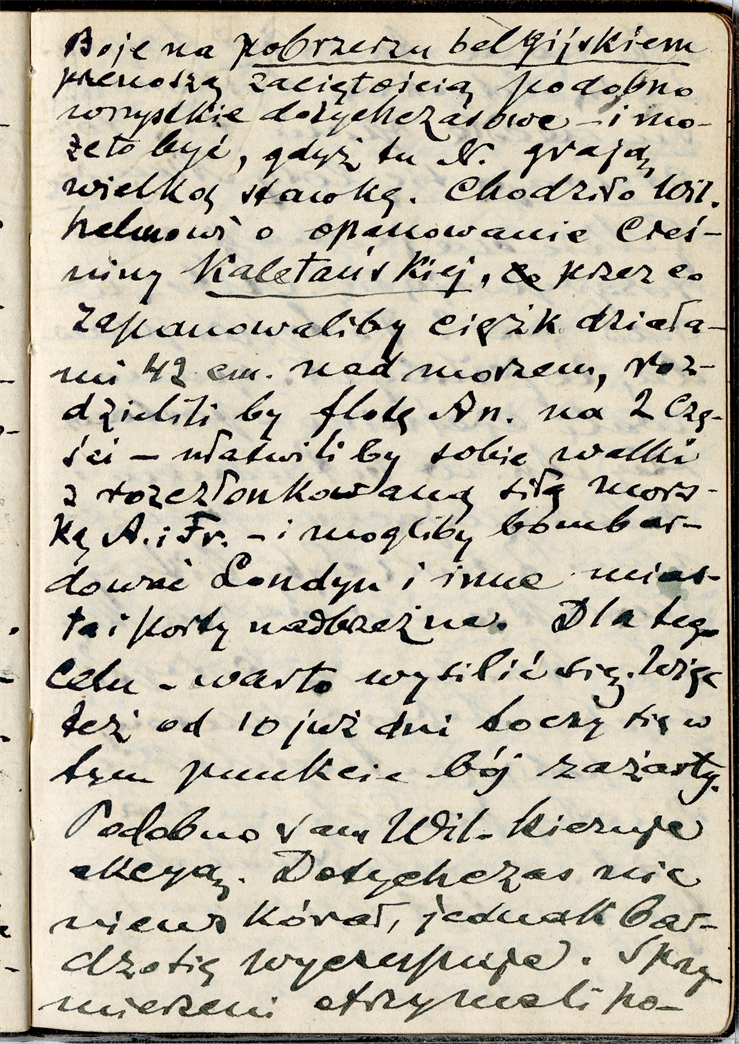 Boje na pobrzeżu belgijskiem
przenoszą zaciętością podobno
wszystkie dotychczasowe – i mo-
że to być, gdyż tu N. grają
wielką stawkę. Chodziło Wil-
helmowi o opanowanie Cieś-
niny Kaletańskiej, przez co
zapanowaliby ciężk. działa-
mi 42 cm. nad morzem, roz-
dzielili by flotę An. na 2 czę-
ści – ułatwili by sobie walki
z rozczłonkowaną siłą mors-
ką A. i Fr. – i mogliby bombar-
dować Londyn i inne mias-
ta i porty nadbrzeżne. Dla tego
celu – warto wysilić się. Więc
też od 10 już dni toczy się w
tym punkcie bój zażarty.
Podobno sam Wil. kieruje
akcyą. Dotychczas nic
nie wskórał, jednak bar-
dzo się wyczerpuje. Sprzy
mierzeni otrzymali po-